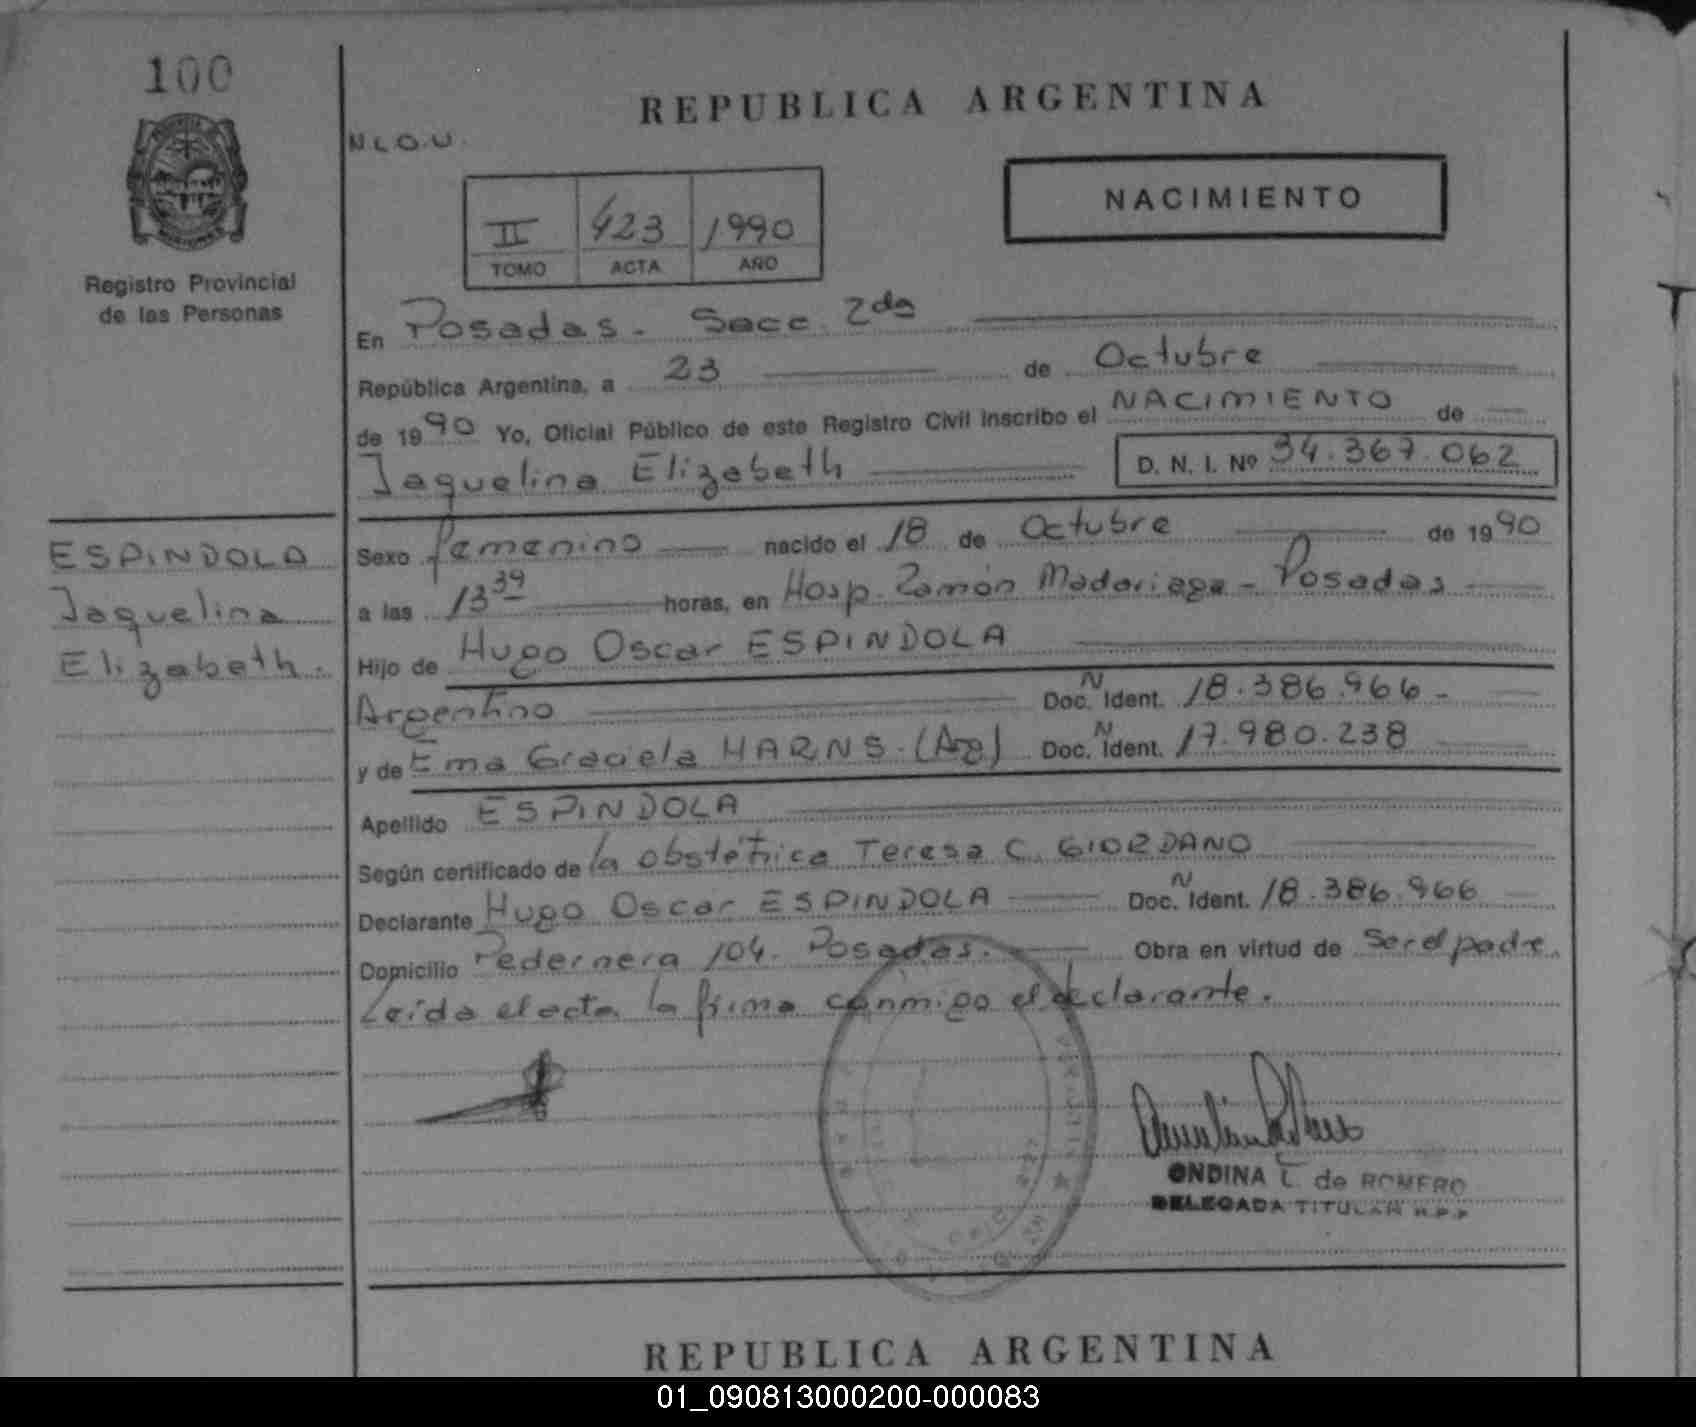 100
REPUBLICA ARGENTINA
N L O.U.
NACIMIENTO
II 423 1990
TOMO ACTA AÑO
Registro Provincial
de las Personas
En Posadas. Secc. 2da
República Argentina, a 23 de Octubre
de 1990 Yo, Oficial Público de este Registro Civil inscribo el NACIMIENTO de
Jaquelina Elizabeth D. N. I. Nº 34.367.062
ESPINDOLA
Jaquelina
Elizabeth.
Sexo femenino nacido el 18 de Octubre de 1990
a las 13 39 horas, en Hosp. Ramón Madariaga - Posadas
Hijo de Hugo Oscar ESPINDOLA
Argentino Doc. N Ident. 18.386.966 -
y de Ema Graciela HARNS. (Arg) Doc. N Ident. 17.980.238
Apellido ESPINDOLA
Según certificado de la obstétrica Teresa C. GIORDANO
Declarante Hugo Oscar ESPINDOLA Doc. N Ident. 18.386.966
Domicilio Pedernera 104. Posadas. Obra en virtud de Ser el padre.
Leída el acta la firma conmigo el declarante.
ONDINA L. de ROMERO
DELEGADA TITULAR R.P.P
REPUBLICA ARGENTINA
01_090813000200-000083